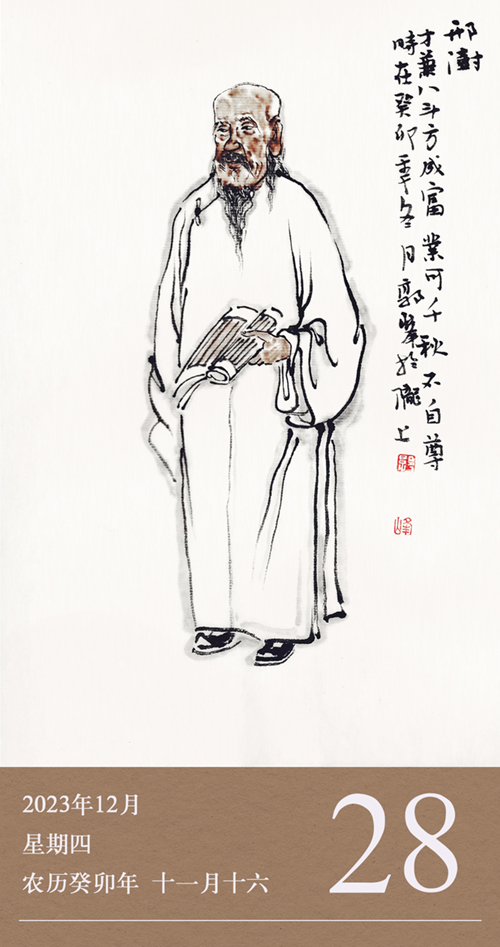 邢澍
才兼八斗方成富 業可千秋不自尊
時在癸卯年冬月郭峯於隴上
峰
2023年12月
星期四
农历癸卯年 十一月十六
28